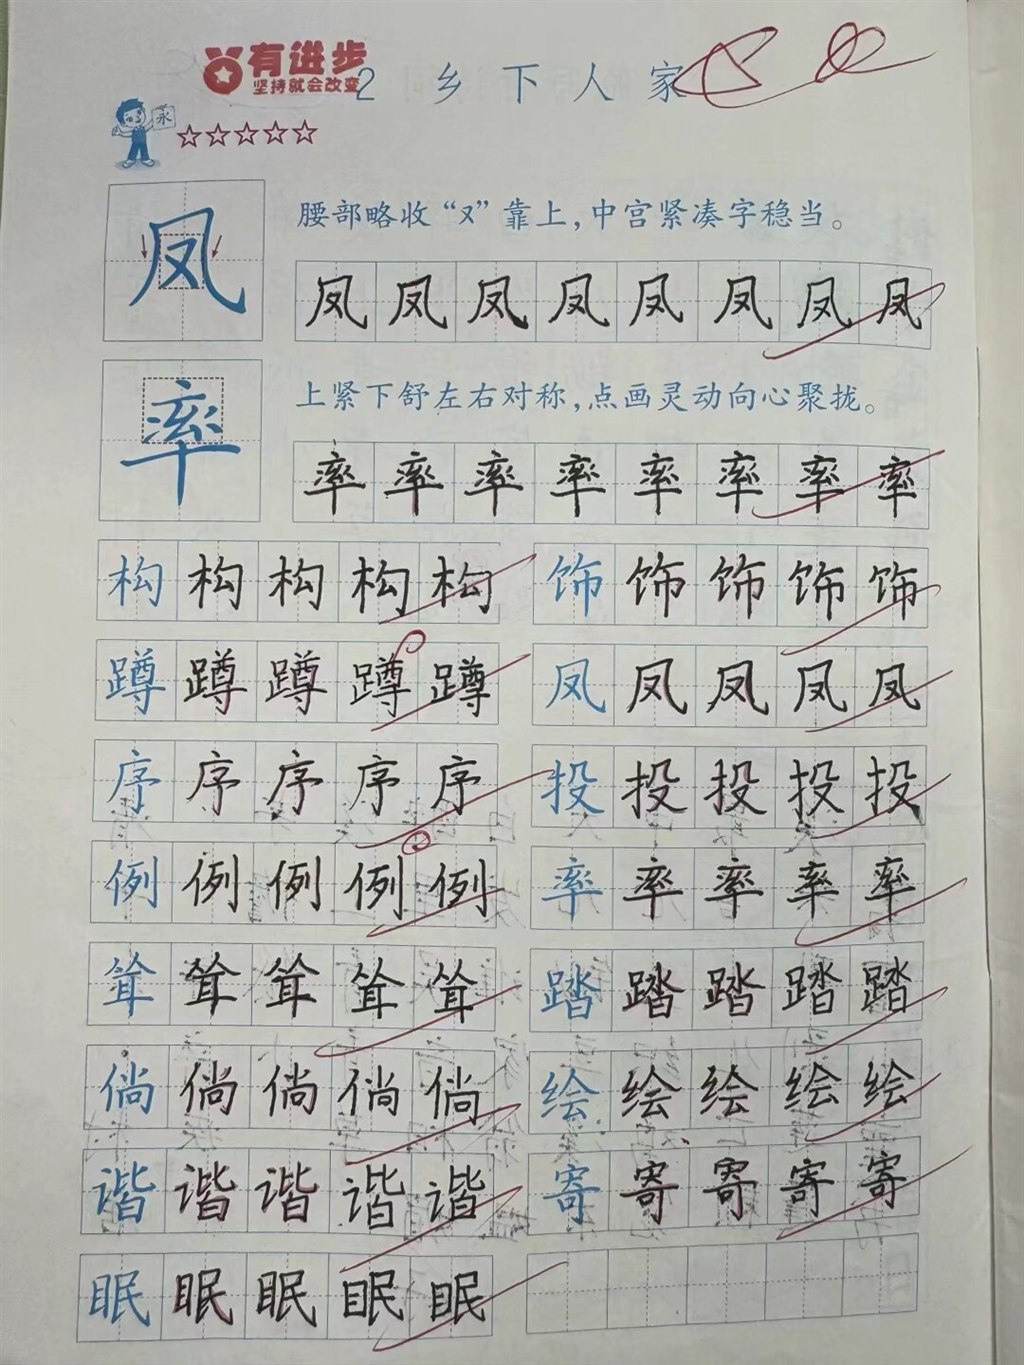 有进步
坚持就会改变
2 乡下人家
永
☆☆☆☆☆
凤
腰部略收“ㄡ”靠上，中宫紧凑字稳当。
凤 凤 凤 凤 凤 凤 凤 凤
率
上紧下舒左右对称，点画灵动向心聚拢。
率 率 率 率 率 率 率 率
构 构 构 构 构 饰 饰 饰 饰 饰
蹲 蹲 蹲 蹲 蹲 凤 凤 凤 凤 凤
序 序 序 序 序 投 投 投 投 投
例 例 例 例 例 率 率 率 率 率
耸 耸 耸 耸 耸 踏 踏 踏 踏 踏
倘 倘 倘 倘 倘 绘 绘 绘 绘 绘
谐 谐 谐 谐 谐 寄 寄 寄 寄 寄
眠 眠 眠 眠 眠